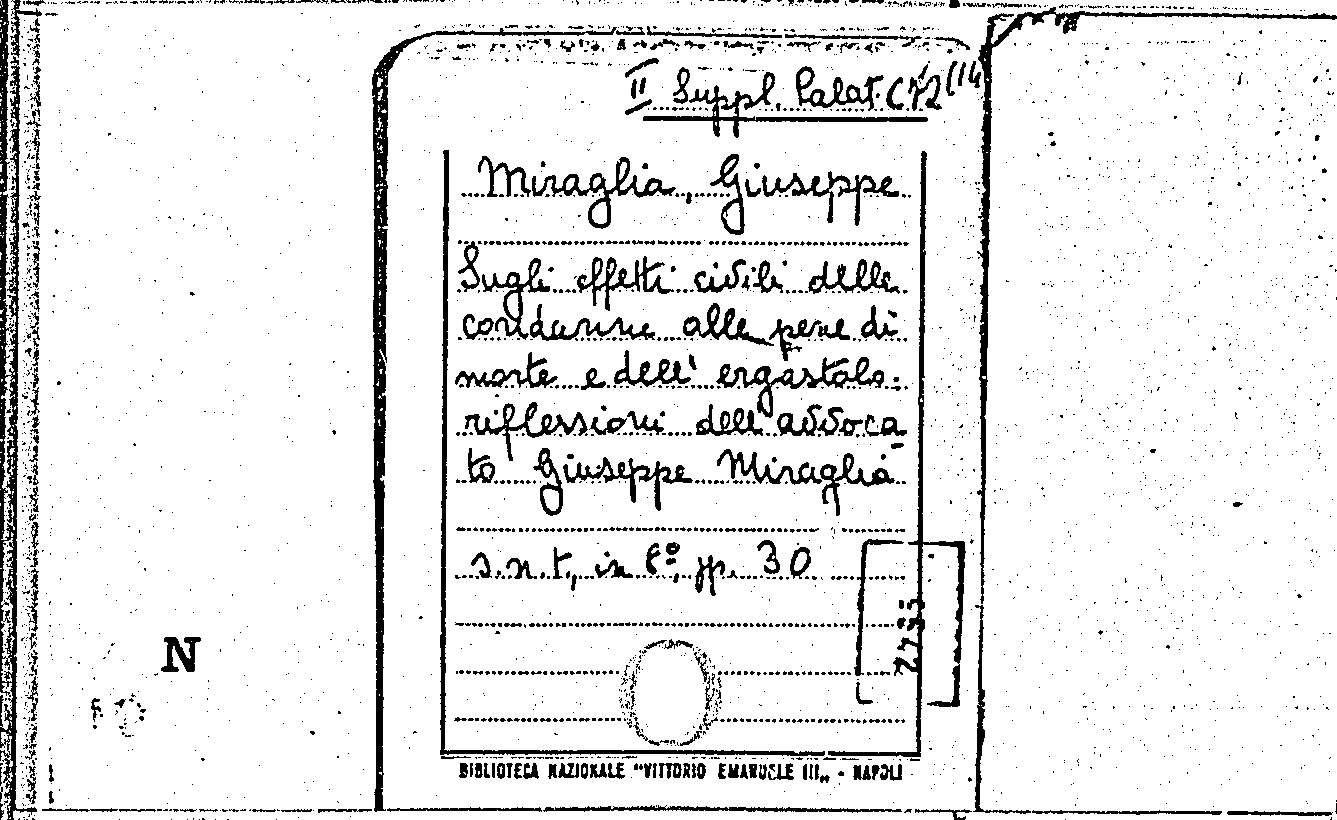 II Suppl. Palat. C72(14
Miraglia, Giuseppe
Sugli effetti civili delle
condanne alle pene di
morte e dell' ergastolo:
riflessioni dell'avvoca-
to Giuseppe Miraglia
s.n.t, in 8º, pp. 30
N
BIBLIOTECA NAZIONALE "VITTORIO EMANUELE III„ - NAPOLI